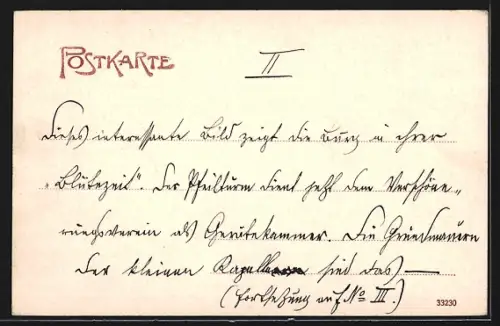 POSTKARTE
II
Dieses interessante Bild zeigt die Burg in ihrer
"Blütezeit". Der Pfeilturm dient jetzt dem Verschöne-
rungsverein als Gerätekammer. Die Grundmauern
der kleinen Kapelle sind das —
(Fortsetzung auf No III.)
33230